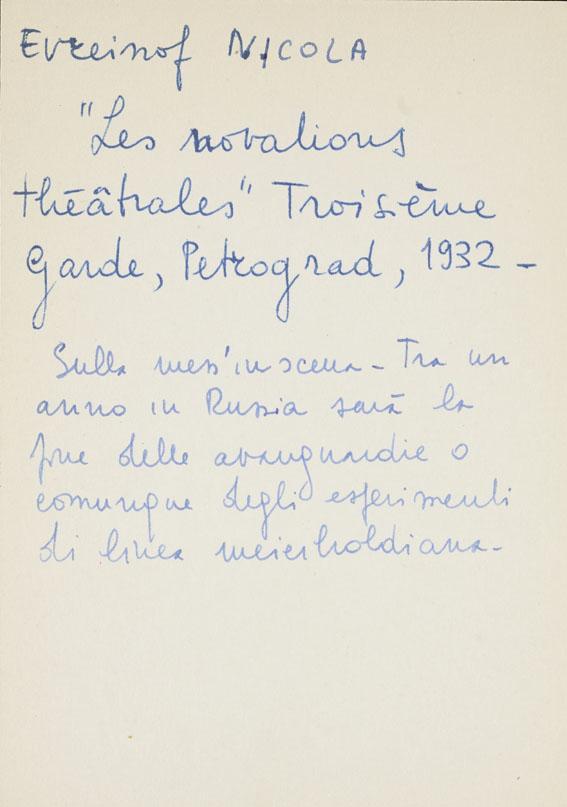 Evreinof NICOLA
"Les novations
théâtrales" Troisième
Garde, Petrograd, 1932 -
Sulla mess'in scena - Tra un
anno in Russia sarà la
fine delle avanguardie o
comunque degli esperimenti
di linea meierholdiana -